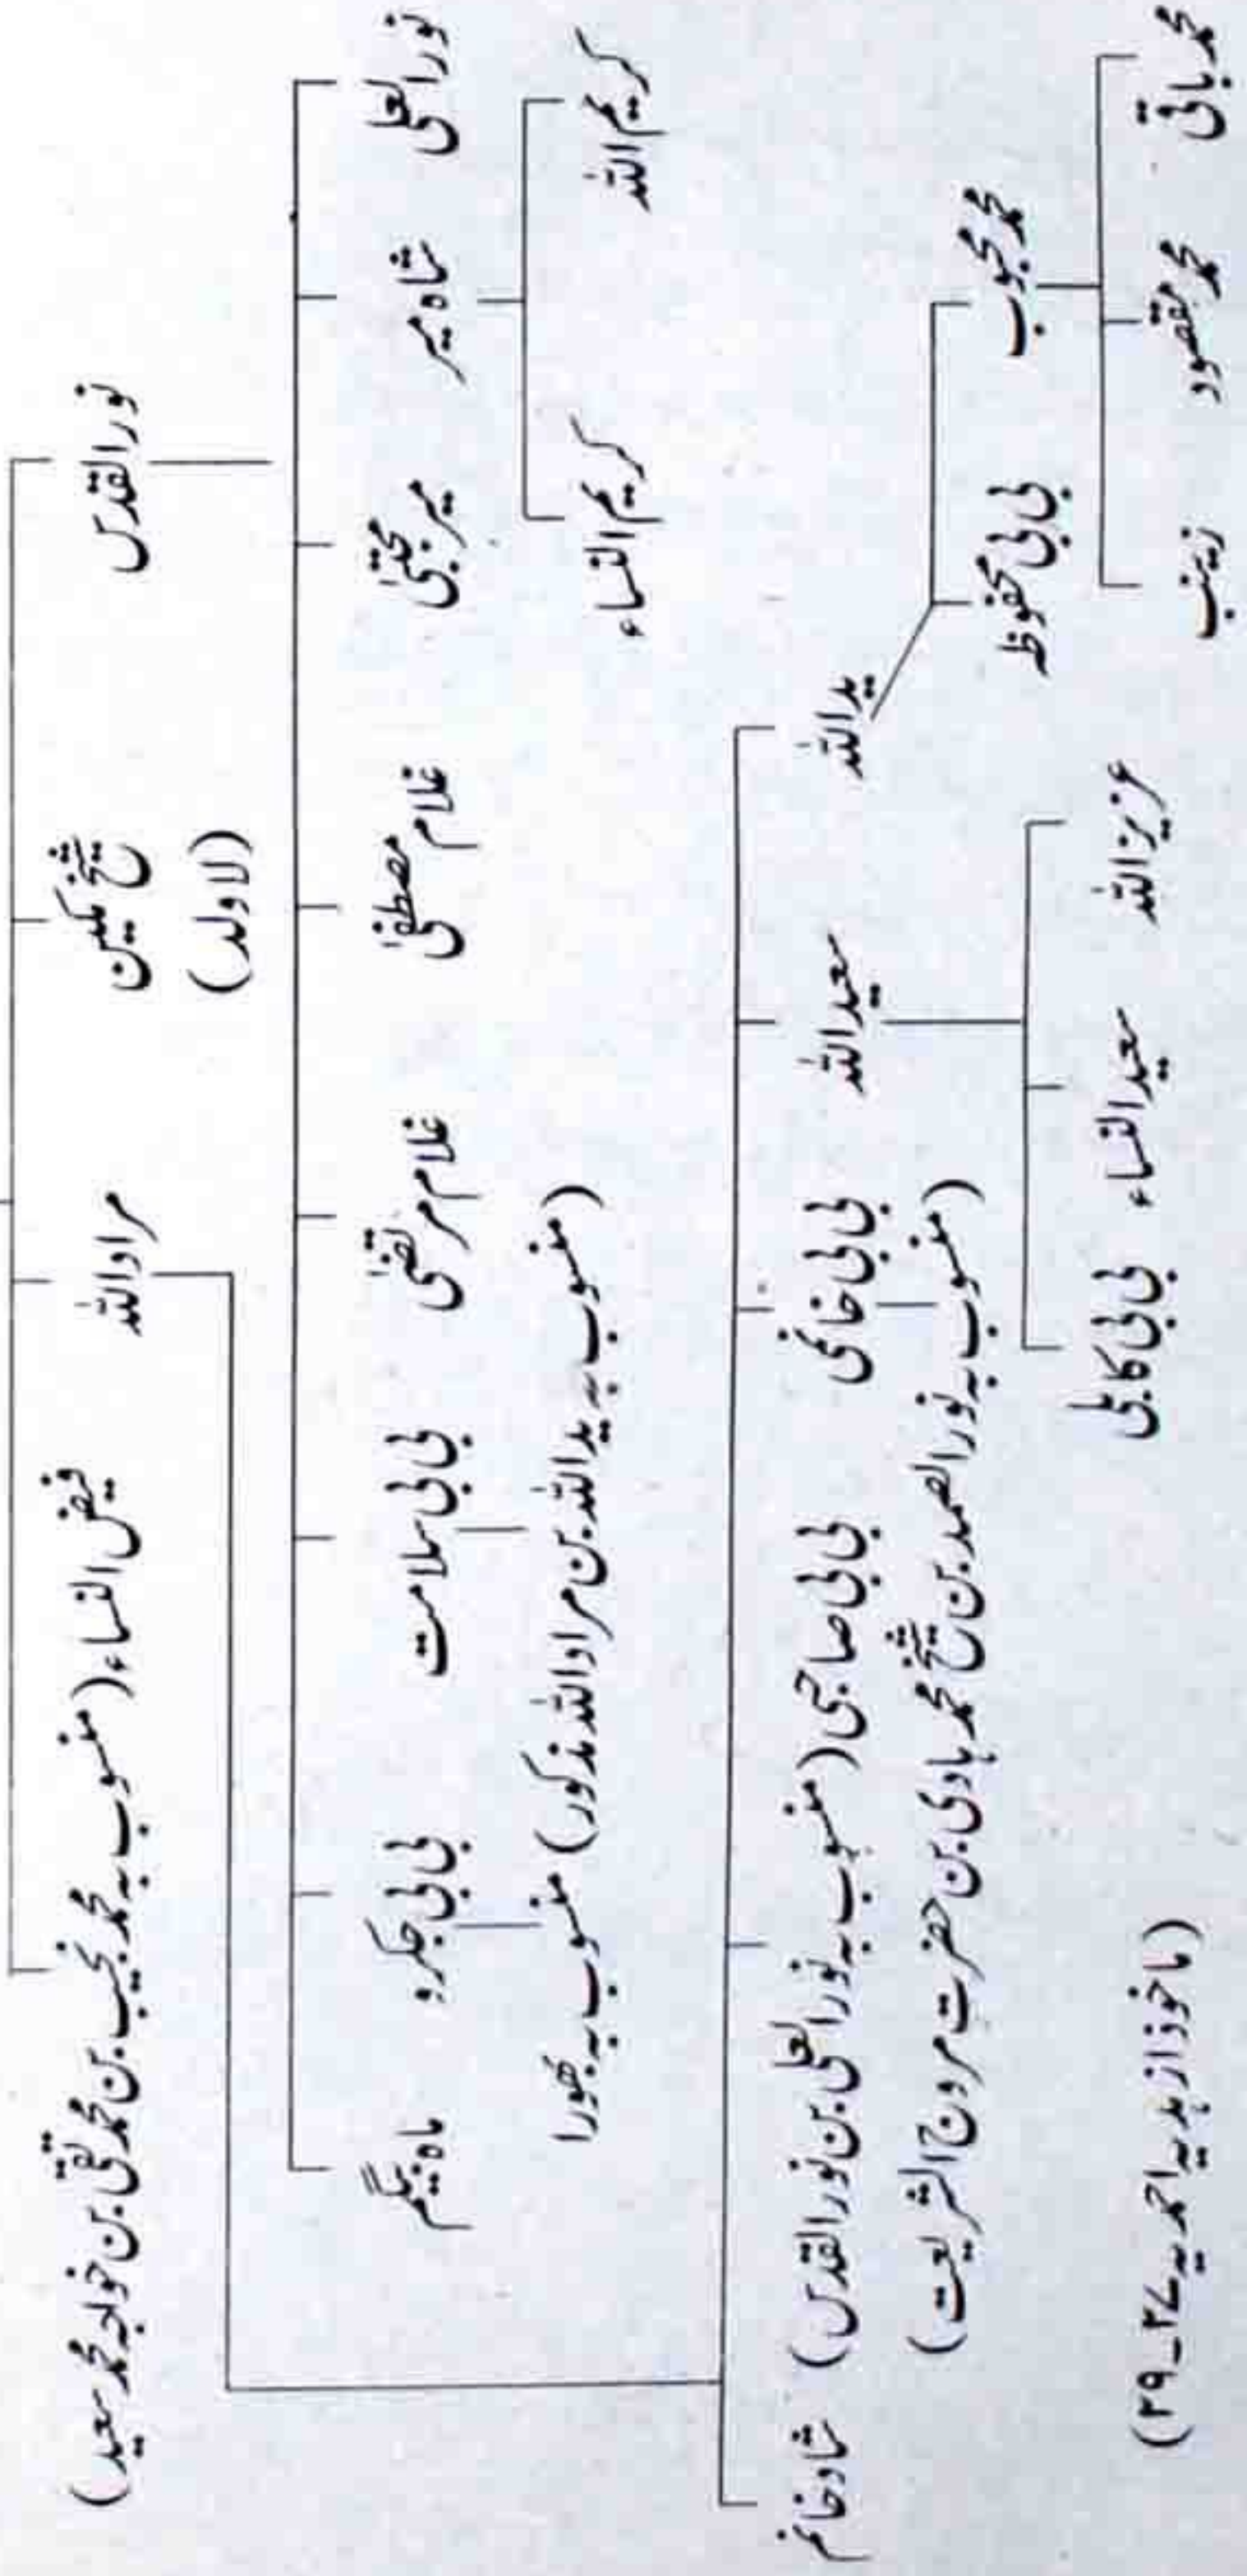 نورالقدس شیخ مکین مرادالله فیض النساء (منسوب به محمد نجیب بن محمد تقی بن خواجه محمد سعید)
(لاولد)
نورالعلی شاه میر میر مجتبیٰ غلام مصطفیٰ غلام مرتضیٰ بی بی سلامت بی بی جکرو ماه بیگم
کریم الله کریم النساء (منسوب به یدالله بن مرادالله مذکور) منسوب به بھورا
یدالله سعیدالله بی بی خانمی بی بی صاحبی (منسوب به نورالعلی بن نورالقدس) شاد خانم
(منسوب به نورالصمد بن شیخ محمد ہادی بن حضرت مروج الشریعت)
محمد محبوب بی بی محفوظہ
عزیزالله سعیدالنساء بی بی کابلی
محمد باقی محمد مقصود زینب
(ماخوذ از ہدیہ احمدیہ ۲۷-۲۹)